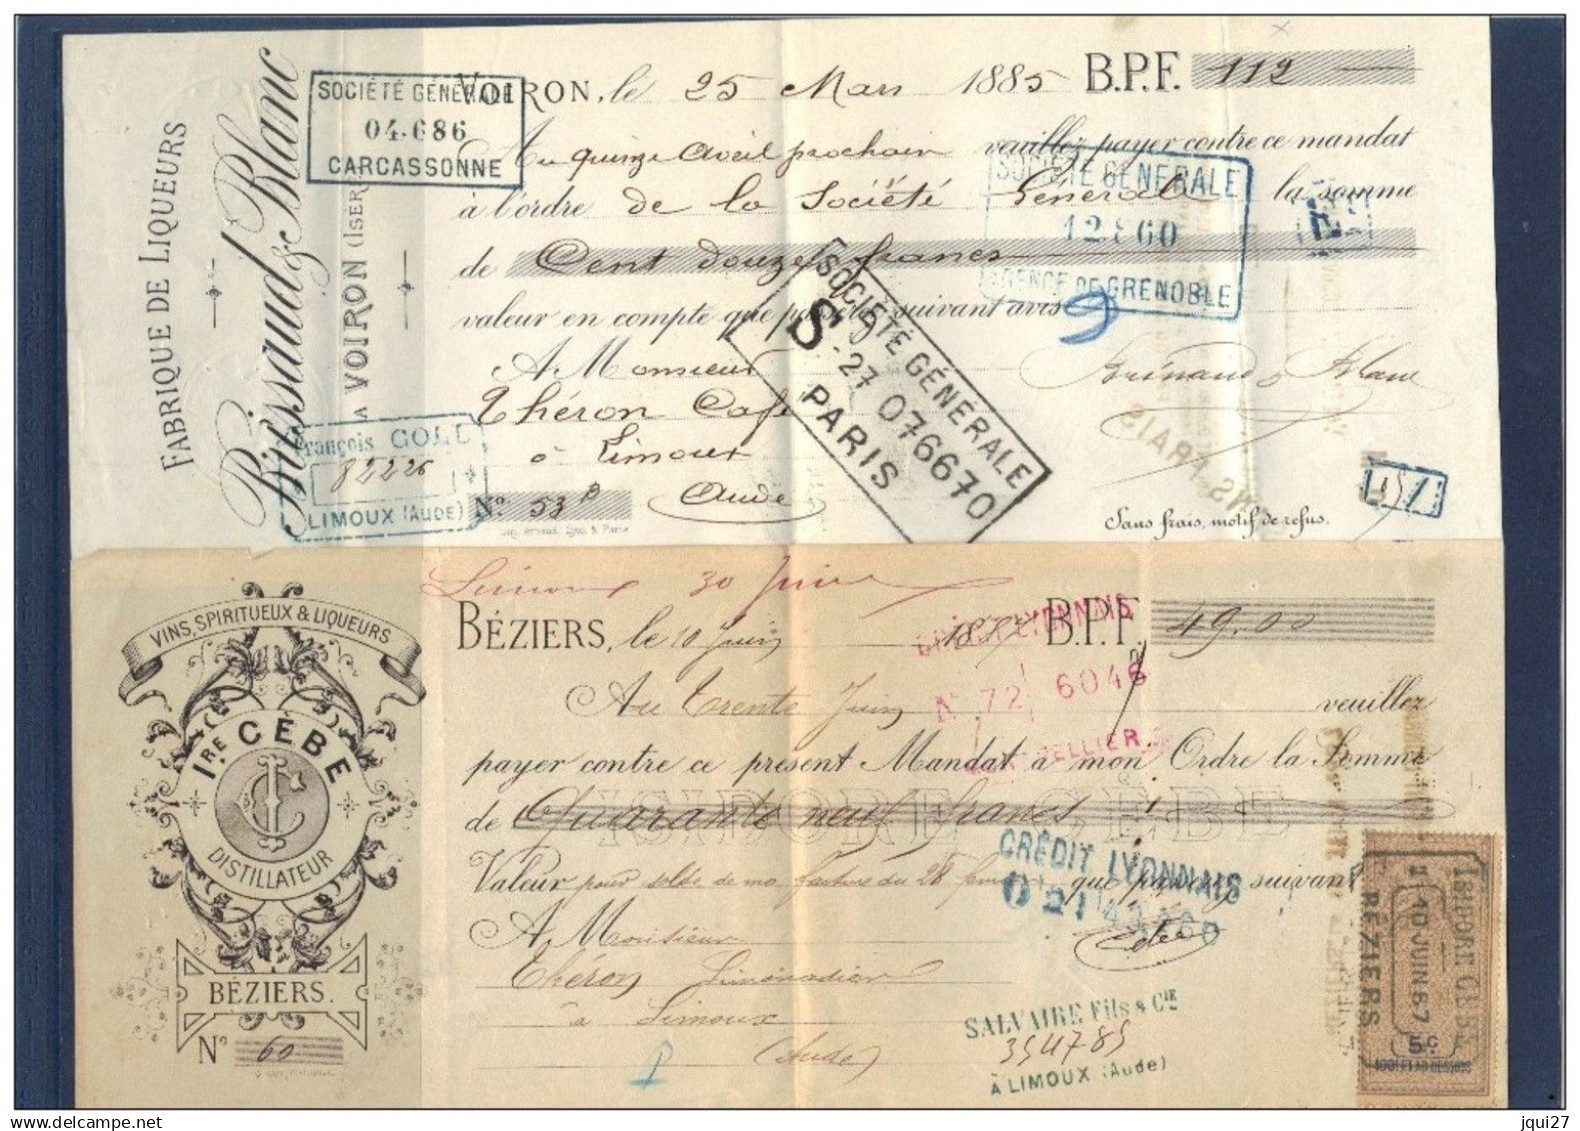 FABRIQUE DE LIQUEURS
Brissaud & Blanc
A VOIRON (ISÈRE
SOCIÉTÉ GÉNÉRALE
04.686
CARCASSONNE
VOIRON, le 25 Mars 1885 B.P.F. 112
Au quinze avril prochain veuillez payer contre ce mandat
à l'ordre de la Société Générale la somme
de Cent douze francs
valeur en compte que passerez suivant avis
A Monsieur
Théron Café
à Limoux
Aude
Nº 53
SOCIÉTÉ GÉNÉRALE
12860
AGENCE DE GRENOBLE
9
SOCIÉTÉ GÉNÉRALE
S 27 076670
PARIS
François GOLL
82226
LIMOUX (AUDE)
Sans frais, motif de refus.
Limoux 30 Juin
VINS, SPIRITUEUX & LIQUEURS
1.RE CÈBE
DISTILLATEUR
BÉZIERS.
Nº 60
BÉZIERS, le 10 Juin 1887 B.P.F. 49.00
Au Trente Juin veuillez
payer contre ce présent Mandat à mon Ordre la Somme
de Quarante neuf francs
ISIDORE CÈBE
Valeur pour solde de ma facture du 28 que passerez suivant
A Monsieur
Théron Limonadier
à Limoux
(Aude)
Cèbe
LYONNAIS
Nº 72 6046
CRÉDIT LYONNAIS
SALVAIRE Fils & Cie
354785
À LIMOUX (Aude)
ISIDORE CÈBE
10 JUIN 87
BÉZIERS
5c
100F ET AU DESSOUS
www.delcampe.net
jqui27